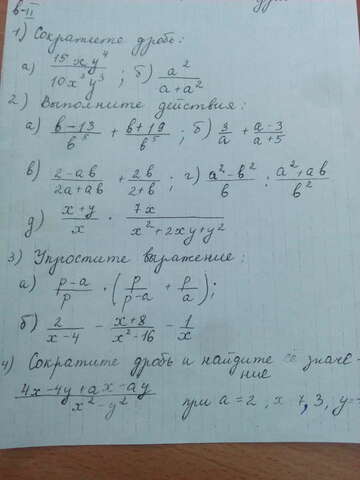 в-II
1) Сократите дробь:
а) 15xy⁴/10x³y³ ; б) a²/(a+a²)
2) Выполните действия:
а) (b-13)/b⁵ + (b+19)/b⁵ ; б) 3/a + (a-3)/(a+5)
в) (2-ab)/(2a+ab) + 2b/(2+b) ; г) (a²-b²)/b : (a²+ab)/b²
д) (x+y)/x · 7x/(x²+2xy+y²)
3) Упростите выражение:
а) (p-a)/p · (p/(p-a) + p/a);
б) 2/(x-4) - (x+8)/(x²-16) - 1/x
4) Сократите дробь и найдите её значе-
ние
(4x-4y+ax-ay)/(x²-y²) при a=2, x 7,3, y=